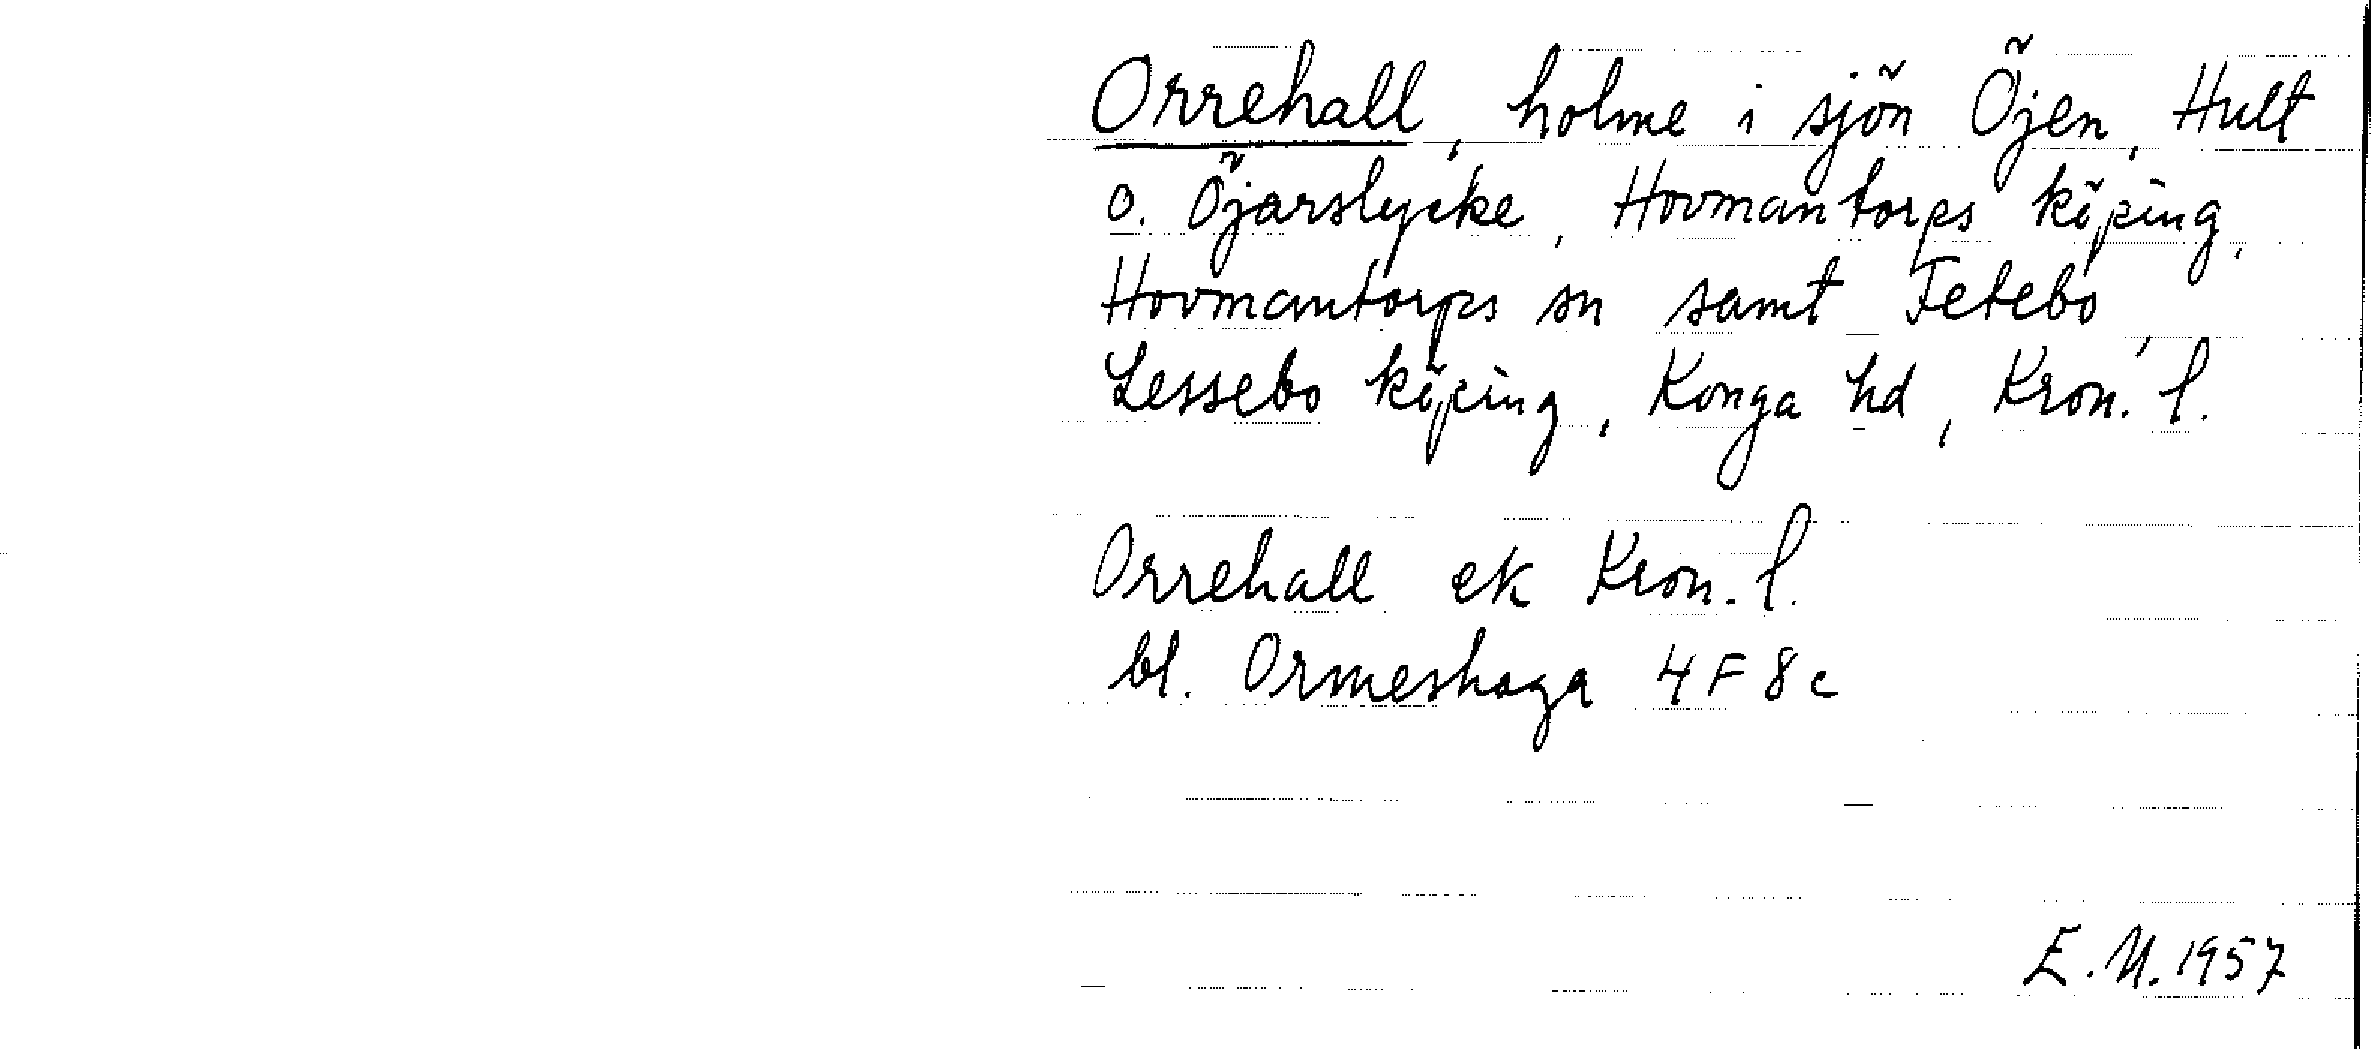 Orrehall, holme i sjön Öjen, Hult
o. Öjarslycke, Hovmantorps köping,
Hovmantorps sn samt Fetebo,
Lessebo köping, Konga hd, Kron. l.
Orrehall ek Kron. l.
bl. Ormeshaga 4F8c
E.M. 1957